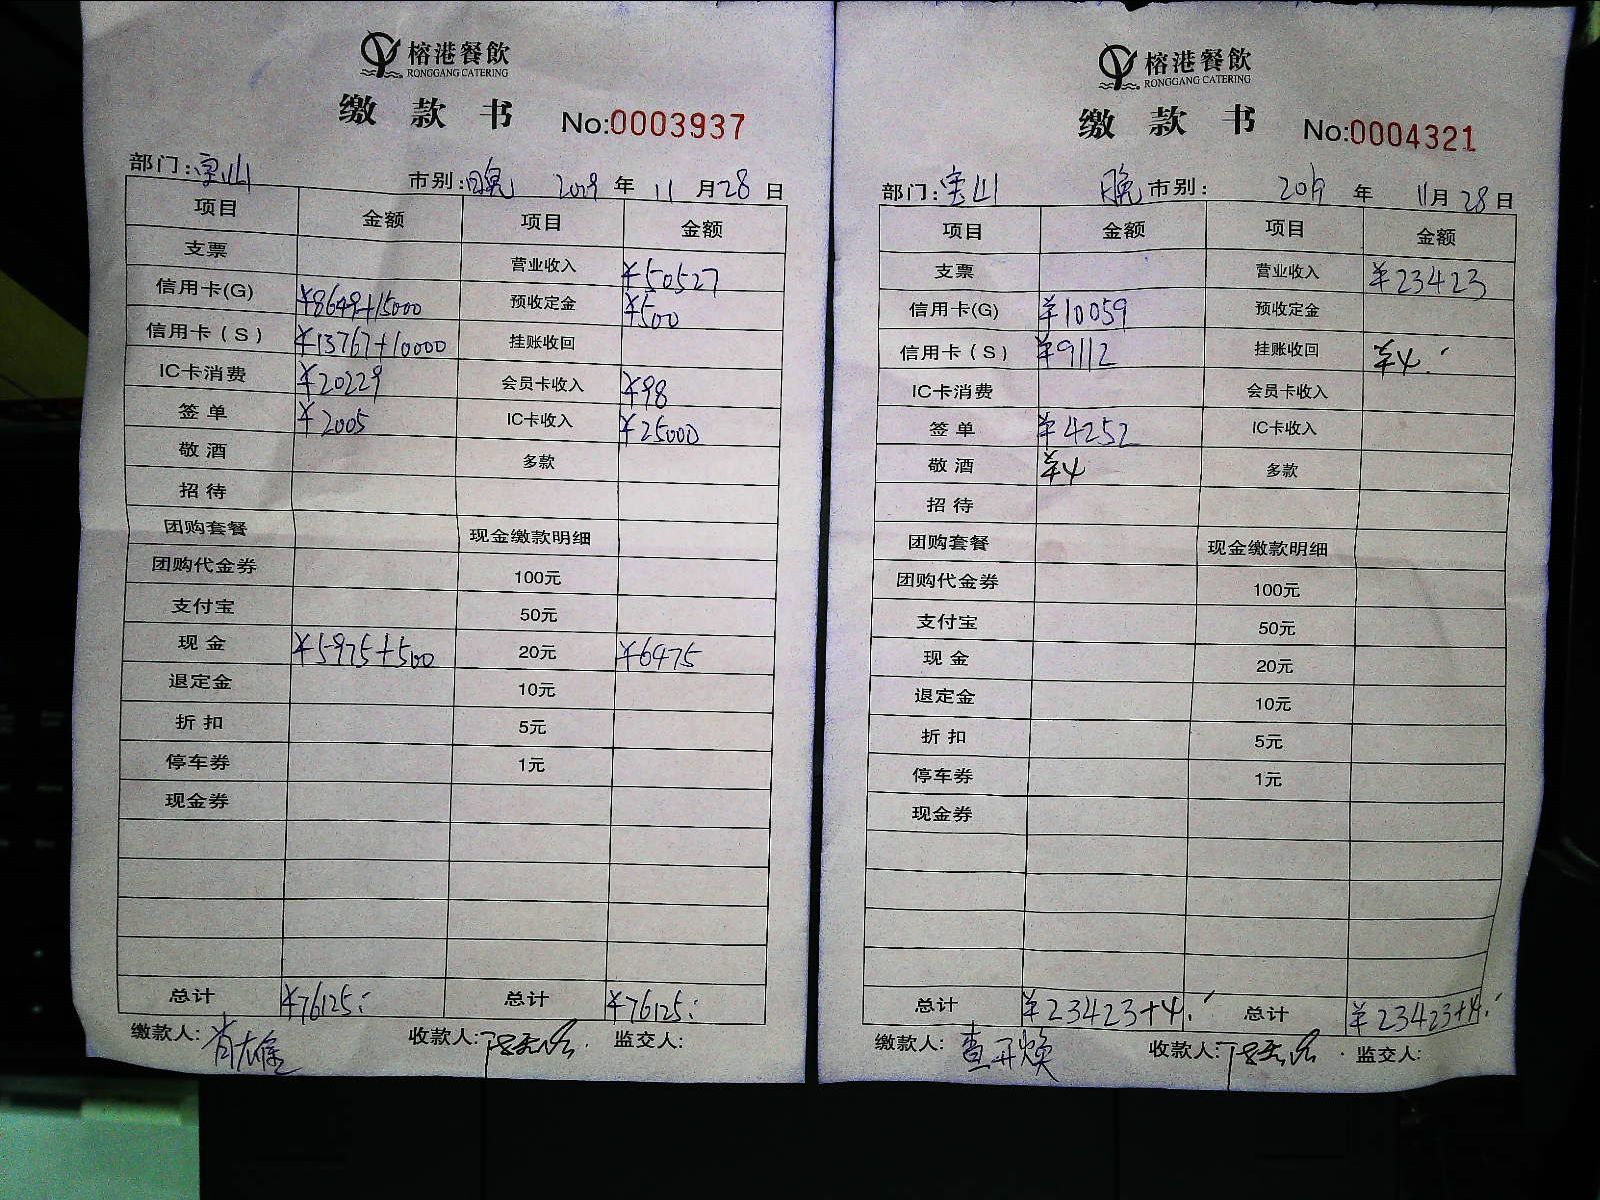 榕港餐飲
RONGGANG CATERING
缴款书 No:0003937
部门:宝山 市别:晚 2019年11月28日
项目 金额 项目 金额
支票 营业收入 ¥50527
信用卡(G) ¥8649+15000 预收定金 ¥500
信用卡(S) ¥13767+10000 挂账收回
IC卡消费 ¥20229 会员卡收入 ¥98
签单 ¥2005 IC卡收入 ¥25000
敬酒 多款
招待
团购套餐 现金缴款明细
团购代金券 100元
支付宝 50元
现金 ¥5975+500 20元 ¥6475
退定金 10元
折扣 5元
停车券 1元
现金券
总计 ¥76125 总计 ¥76125
缴款人: 收款人: 监交人:
榕港餐飲
RONGGANG CATERING
缴款书 No:0004321
部门:宝山 晚市别: 2019年11月28日
项目 金额 项目 金额
支票 营业收入 ¥23423
信用卡(G) ¥10059 预收定金
信用卡(S) ¥9112 挂账收回 ¥4
IC卡消费 会员卡收入
签单 ¥4252 IC卡收入
敬酒 ¥4 多款
招待
团购套餐 现金缴款明细
团购代金券 100元
支付宝 50元
现金 20元
退定金 10元
折扣 5元
停车券 1元
现金券
总计 ¥23423+4 总计 ¥23423+4
缴款人:查开焕 收款人: 监交人: